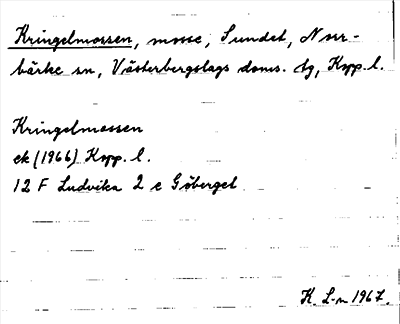 Kringelmossen, mosse, Sundet, Norr-
bärke sn, Västerbergslags doms. tg, Kopp. l.
Kringelmossen
ek (1966) Kopp. l.
12 F Ludvika 2 e Göberget
K. L-n 1967.